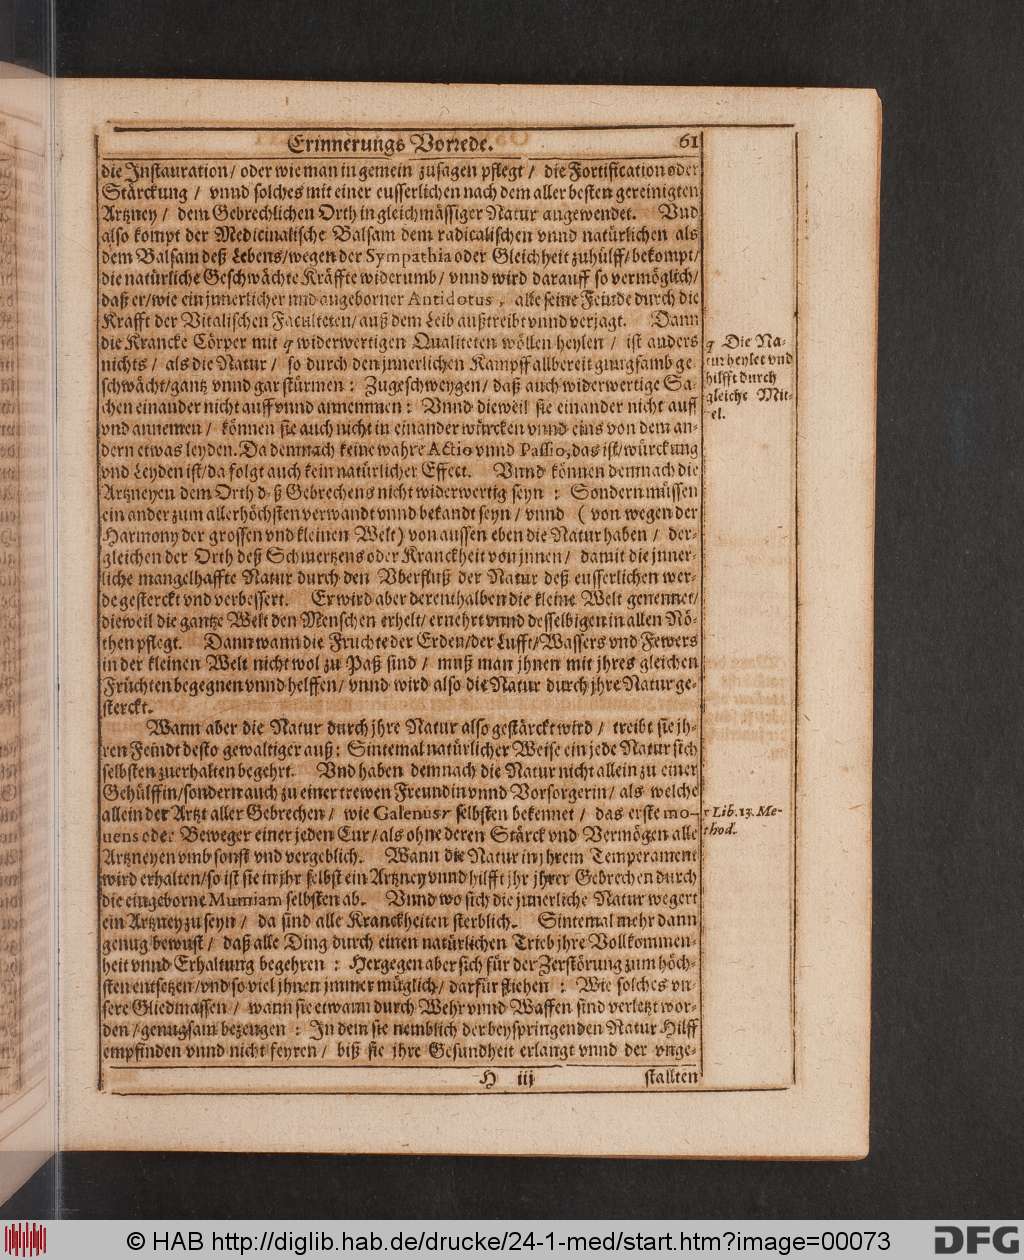 Erinnerungs Vorrede. 61
die Instauration/ oder wie man in gemein zusagen pflegt/ die Fortification oder
Stärckung/ vnnd solches mit einer eusserlichen nach dem aller besten gereinigten
Artzney/ dem Gebrechlichen Orth in gleichmässiger Natur angewendet. Vnd
also kompt der Medicinalische Balsam dem radicalischen vnnd natürlichen als
dem Balsam deß Lebens/ wegen der Sympathia oder Gleichheit zuhülff/ bekompt/
die natürliche Geschwächte Kräffte widerumb/ vnnd wird darauff so vermöglich/
daß er/ wie ein jnnerlicher und angeborner Antidotus, alle seine Feinde durch die
Krafft der Vitalischen Faculteten/ auß dem Leib außtreibt vnnd verjagt. Dann
die Krancke Cörper mit q widerwertigen Qualiteten wöllen heylen/ ist anders
nichts/ als die Natur/ so durch den jnnerlichen Kampff allbereit gnugsamb ge
schwächt/ gantz vnnd gar stürmen: Zugeschweygen/ daß auch widerwertige Sa-
chen einander nicht auff vnnd annemmen: Vnnd dieweil sie einander nicht auff
vnd annemen/ können sie auch nicht in einander würcken vnnd eins von dem an-
dern etwas leyden. Da demnach keine wahre Actio vnnd Passio, das ist/ würckung
vnd Leyden ist/ da folgt auch kein natürlicher Effect. Vnnd können demnach die
Artzneyen dem Orth deß Gebrechens nicht widerwertig seyn: Sondern müssen
ein ander zum allerhöchsten verwandt vnnd bekandt seyn/ vnnd (von wegen der
Harmony der grossen vnd kleinen Welt) von aussen eben die Natur haben/ der-
gleichen der Orth deß Schmertzens oder Kranckheit von jnnen/ damit die jnner-
liche mangelhaffte Natur durch den Vberfluß der Natur deß eusserlichen wer-
de gesterckt vnd verbessert. Er wird aber derenthalben die kleine Welt genennet/
dieweil die gantze Welt den Menschen erhelt/ ernehrt vnnd desselbigen in allen Nö-
then pflegt. Dann wann die Fruchte der Erden/ der Lufft/ Wassers vnd Fewers
in der kleinen Welt nicht wol zu Paß sind/ muß man jhnen mit jhres gleichen
Früchten begegnen vnnd helffen/ vnnd wird also die Natur durch jhre Natur ge-
sterckt.
Wann aber die Natur durch jhre Natur also gestärckt wird/ treibt sie jh-
ren Feindt desto gewaltiger auß: Sintemal natürlicher Weise ein jede Natur sich
selbsten zuerhalten begehrt. Vnd haben demnach die Natur nicht allein zu einer
Gehülffin/ sondern auch zu einer trewen Freundin vnnd Vorsorgerin/ als welche
allein der Artzt aller Gebrechen/ wie Galenus r selbsten bekennet/ das erste mo-
uens oder Beweger einer jeden Cur/ als ohne deren Stärck vnd Vermögen alle
Artzneyen vmb sonst vnd vergeblich. Wann die Natur in jhrem Temperament
wird erhalten/ so ist sie in jhr selbst ein Artzney vnnd hilfft jhr jhrer Gebrechen durch
die eingeborne Mumiam selbsten ab. Vnnd wo sich die jnnerliche Natur wegert
ein Artzney zu seyn/ da sind alle Kranckheiten sterblich. Sintemal mehr dann
genug bewust/ daß alle Ding durch einen natürlichen Trieb jhre Vollkommen-
heit vnnd Erhaltung begehren: Hergegen aber sich für der Zerstörung zum höch-
sten entsetzen/ vnd so viel jhnen jmmer müglich/ darfür fliehen: Wie solches vn-
sere Gliedmassen/ wann sie etwann durch Wehr vnnd Waffen sind verletzt wor-
den/ genugsam bezeugen: In dem sie nemblich der beyspringenden Natur Hilff
empfinden vnnd nicht feyren/ biß sie jhre Gesundheit erlangt vnnd der vnge-
H iij stallten
q Die Na-
tur heylet vnd
hilfft durch
gleiche Mit-
el.
r Lib. 13. Me-
thod.
© HAB http://diglib.hab.de/drucke/24-1-med/start.htm?image=00073
DFG